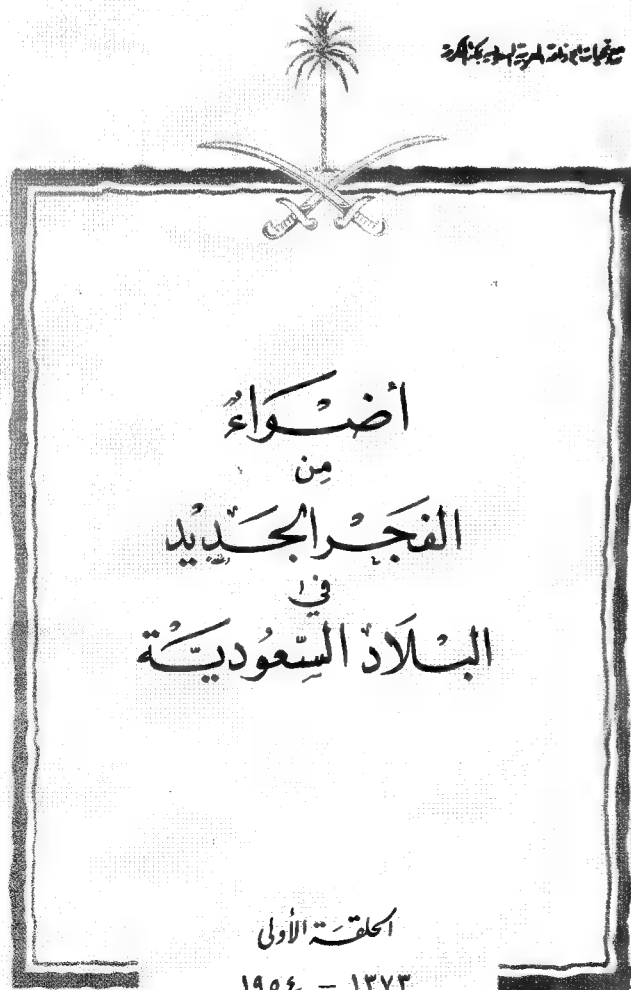 أضْوَاءٌ
مِن
الفَجْر الجَديْد
في
البْلَادْ السِّعُوديَّة
الحلقَة الأولى
١٣٧٣ – ١٩٥٤